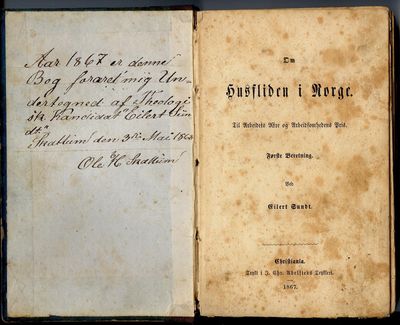 Aar 1867 er denne
Bog foræret mig Un-
dertegned af Theologi
sk Kandidat "Eilert Sun
dt"
den 3die Mai 186
Ole H
Om
Husfliden i Norge.
Til Arbeidets Ære og Arbeidsomhedens Pris.
Første Beretning.
Ved
Eilert Sundt.
Christiania.
Trykt i J. Chr. Abelsteds Trykkeri.
1867.